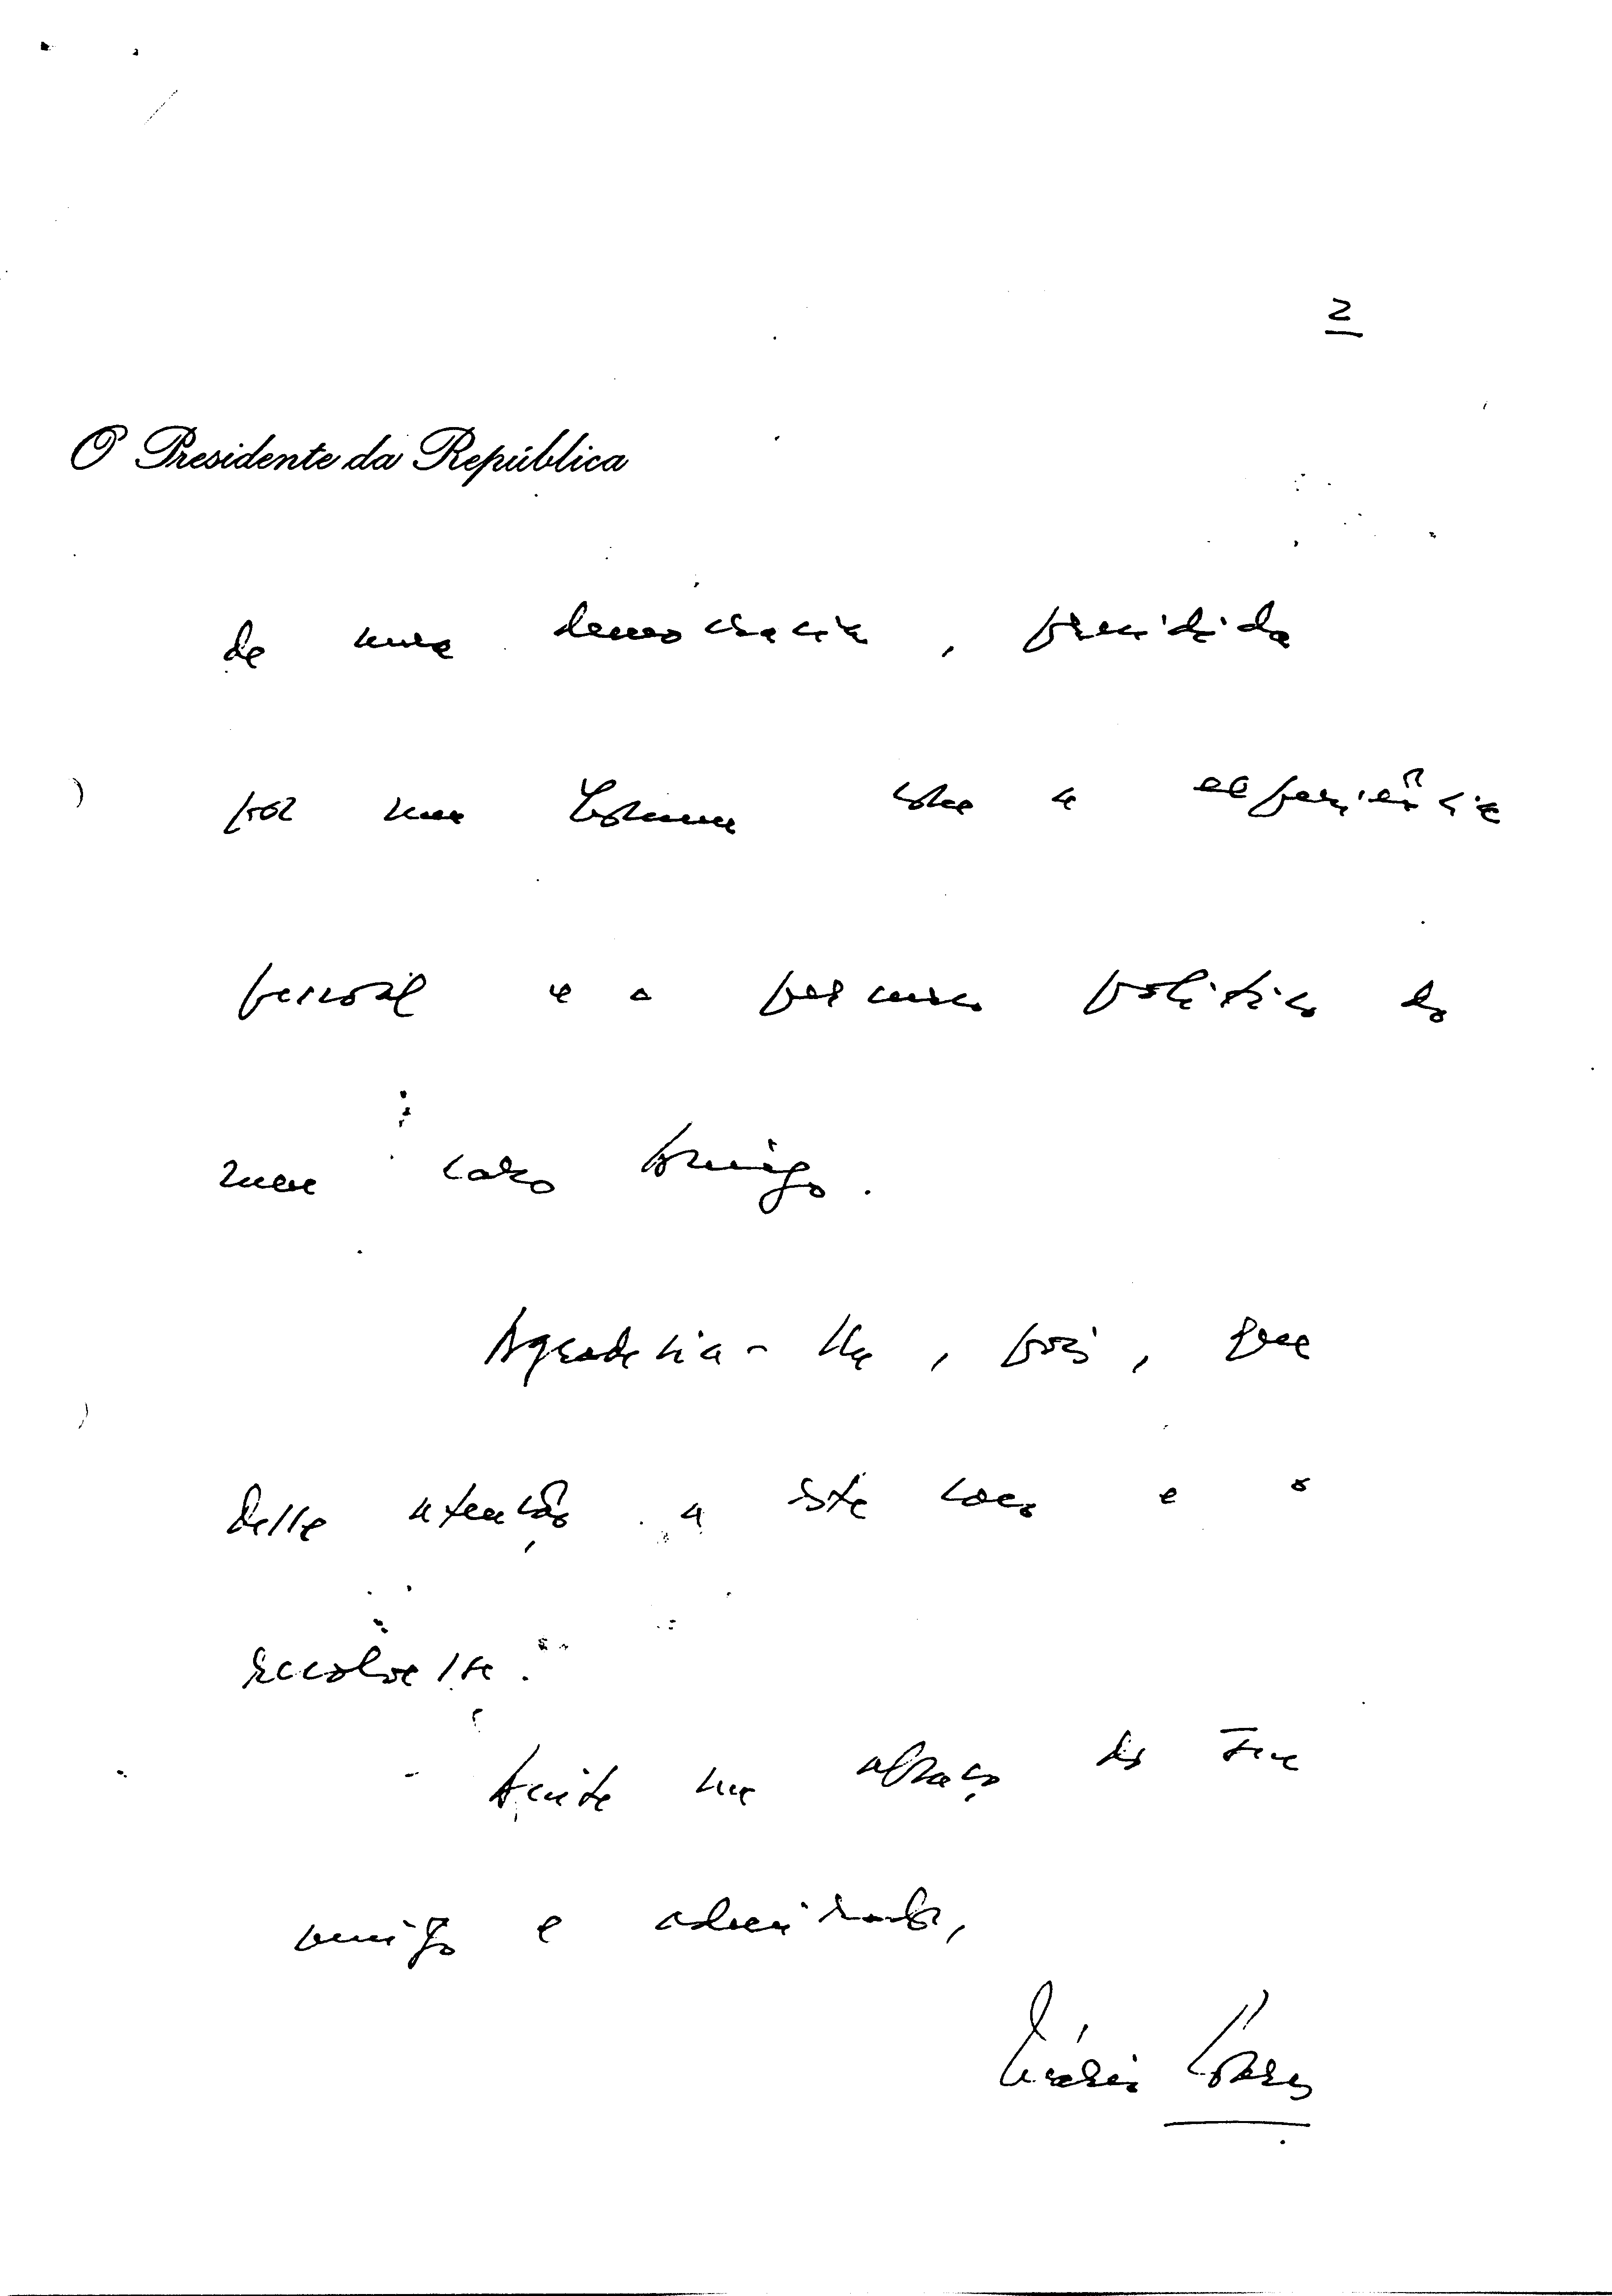 2
O Presidente da República
de uma democracia, presidida
por um homem com a experiência
pessoal e o percurso político do
meu caro Amigo.
Agradecia-lhe, pois, que
desse atenção a este caso e o
resolvesse.
Aceite um abraço do seu
amigo e admirador,
Mário Soares